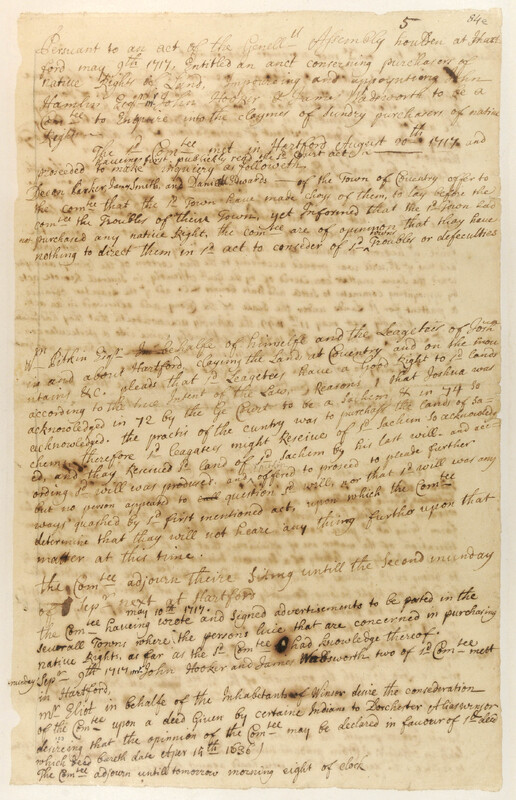 5
84a
Persuant to an act of the Genell Assembly houlden at Hart
ford may 9th 1717, Entitled an anct conserning purchasers of
native Rights to Land, Impouring and appoynting John
Hamelin Esqr mr John Hooker & James Wadsworth to be a
Comtee to Enquire into the claymes of sundry purchasers of native
Right
The sd Comtee met in Hartford August 20th 1717 and
haveing first publickly read the sd Court act
proceeded to make Inquiery as followeth.
Decon parker Senr Smith and of the Town of Coventry ofer to
the comtee that the sd Town have made choys of them, to lay before the
comtee the Troubles of their Town, yet Informed that the sd Town had
not purchased any native Right, the comtee are of openion that thay have
nothing to direct them in sd act to consider of sd Towns Troubles or defeculties
Wm Pitkin Esqr In behalfe of himselfe and the Leagetees of Josh
in and about Hartford, claying the Land at Coventry and on the mou
ntains &c. pleads that sd Leagetees have a Good Right to sd lands
according to the true Intent of the Law, Reasons 1 that Joshua was
acknowledged in 72 by the Ge Court to be a Sachem & in 74 So
acknowledged. the practis of the cuntry was to purchase the lands of Sa-
chems, therefore sd Leagatees might Receive of sd Sachem so acknowledg
ed, and thay Received sd land of sd Sachem by his last will and acc-
ording sd will was prodused, and offered to prosed to pleade further
but no person appeared to question sd will, nor that sd will was any
ways quashed by sd first mentioned act, upon which the Comtee
determine that thay will not heare any thing further upon that
matter at this time.
the Comtee adjourn theire Siting untill the Second munday
of Sepr next at Hartford
may 10th 1717.
the Comtee haveing wrote and signed advertisements to be posted in the
severall Towns where the persons live that are concerned in purchasing
native Rights, as far as the sd Comtee had knowledge thereof.
munday Sepr 9th 1717 mr John Hooker and James Wadsworth two of sd Comtee meet
in Hartford,
mr Eliot in behalfe of the Inhabitants of Winsor desire the consideration
of the Comtee upon a deed Given by certaine Indians to Dorchester Alias Winsor
desireing that the opinnion of the Comtee may be declared in favour of sd deed
which deed bareth date Aper 15th 1636
The Comtee adjourn untill tomorrow morning eight of clock